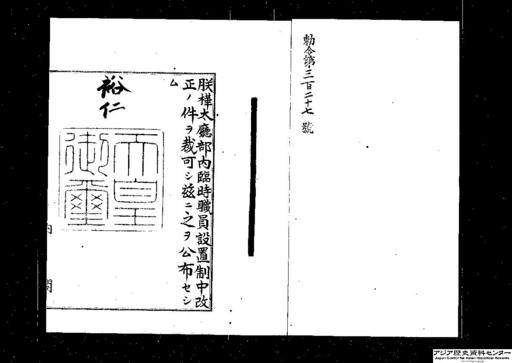 勅令第三百二十七號
朕樺太廳部内臨時職員設置制中改
正ノ件ヲ裁可シ茲ニ之ヲ公布セシ
ム
裕仁
天皇
御璽
内閣
アジア歴史資料センター
Japan Center for Asian Historical Records